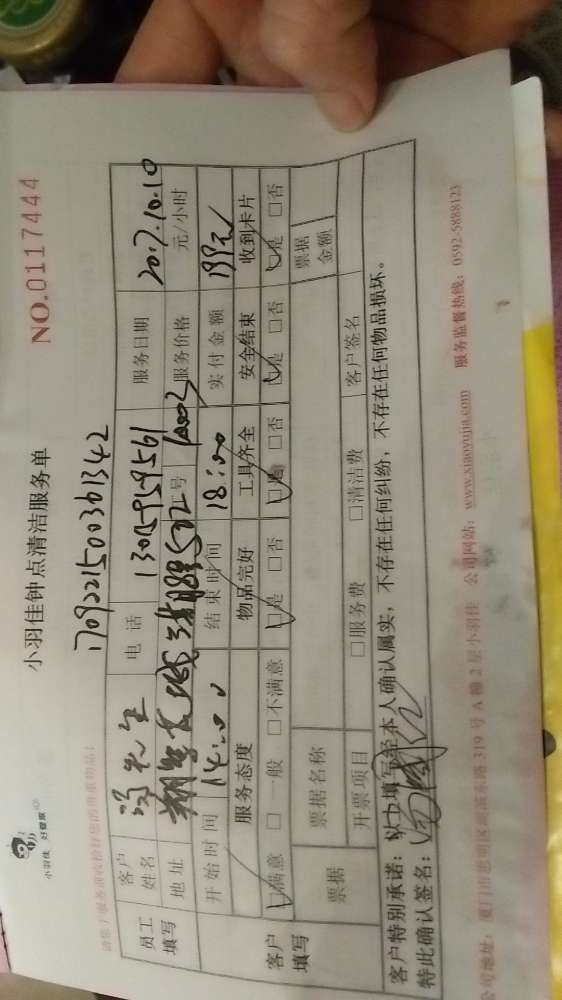 小羽佳 好管家
小羽佳钟点清洁服务单
NO.0117444
17092215003661342
员工填写
客户姓名 冯先生 电话 13015959561 服务日期 2017.10.10
地址 工号 服务价格 元/小时
开始时间 14:00 结束时间 18:00 实付金额 199元
客户填写
服务态度 物品完好 工具齐全 安全结束 收到卡片
满意 □一般 □不满意 是 □否 □否 是 □否 是 □否
票据 票据名称 票据金额
开票项目 □服务费 □清洁费 客户签名
客户特别承诺：以上填写经本人确认属实，不存在任何纠纷，不存在任何物品损坏。
特此确认签名：
公司地址：厦门市思明区 319号A幢2层小羽佳 公司网站：www.xiaoyujia.com 服务监督热线：0592-5888123